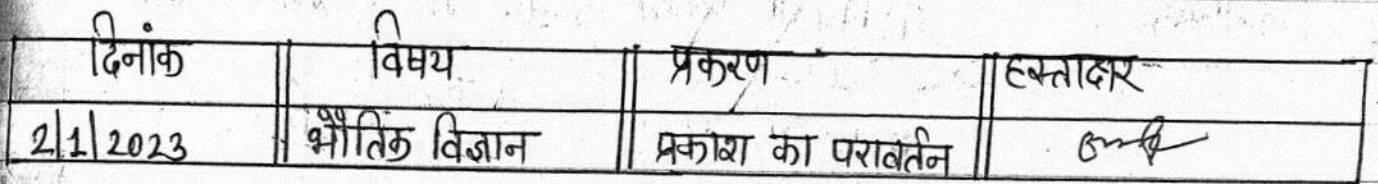 दिनांक विषय प्रकरण हस्ताक्षर
2/1/2023 भौतिक विज्ञान प्रकाश का परावर्तन